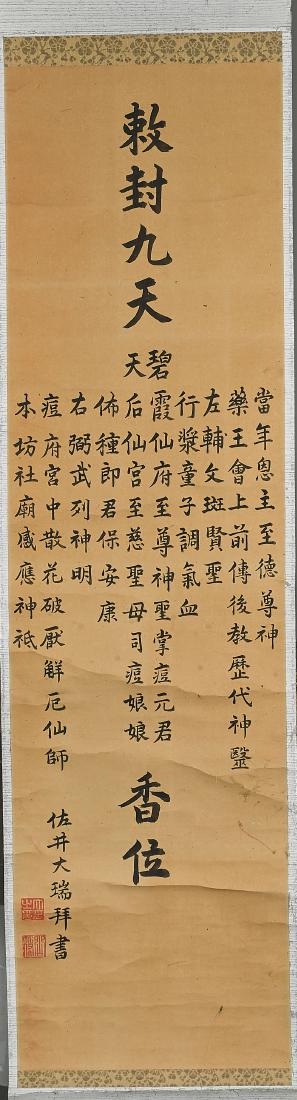 敕封九天
當年恩主至德尊神
藥王會上前傳後教歷代神毉
左輔文斑賢聖
行漿童子調氣血
碧霞仙府至尊神聖掌痘元君
天后仙宮至慈聖母司痘娘娘
佈種郎君保安康
右弼武列神明
痘府宮中散花破厭觧厄仙師
本坊社廟感應神祇
香位
佐井大瑞拜書